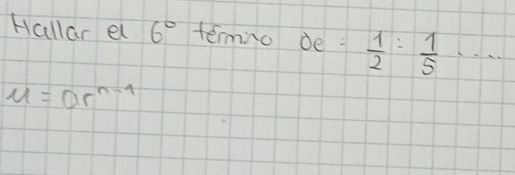 Hallar el 6° término de: 1/2 : 1/5 ....
u = ar^n-1